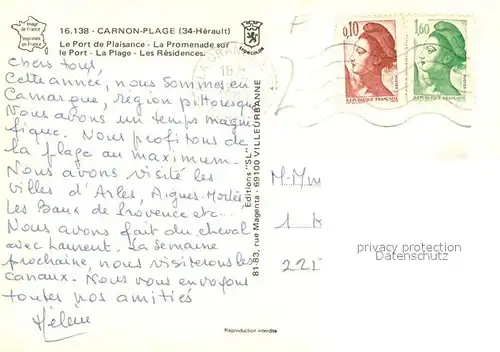 Image de France
Imprimée en France
16.138 - CARNON-PLAGE (34-Hérault)
Le Port de Plaisance - La Promenade sur
le Port - La Plage - Les Résidences.
chers tous,
Cette année, nous sommes en
Camargue, région pittoresque
Nous avons un temps magni-
fique. Nous profitons de
la plage au maximum.
Nous avons visité les
villes d'Arles, Aigues-Mortes
Les Baux de Provence etc...
Nous avons fait du cheval
avec Laurent. La semaine
prochaine, nous visiterons les
canaux. Nous vous envoyons
toutes nos amitiés
Hélène
Editions "SL"
81-83, rue Magenta - 69100 VILLEURBANNE
Reproduction interdite
0,10
REPUBLIQUE FRANÇAISE
1,60
REPUBLIQUE FRANÇAISE
M-Mm
1
221
privacy protection
Datenschutz